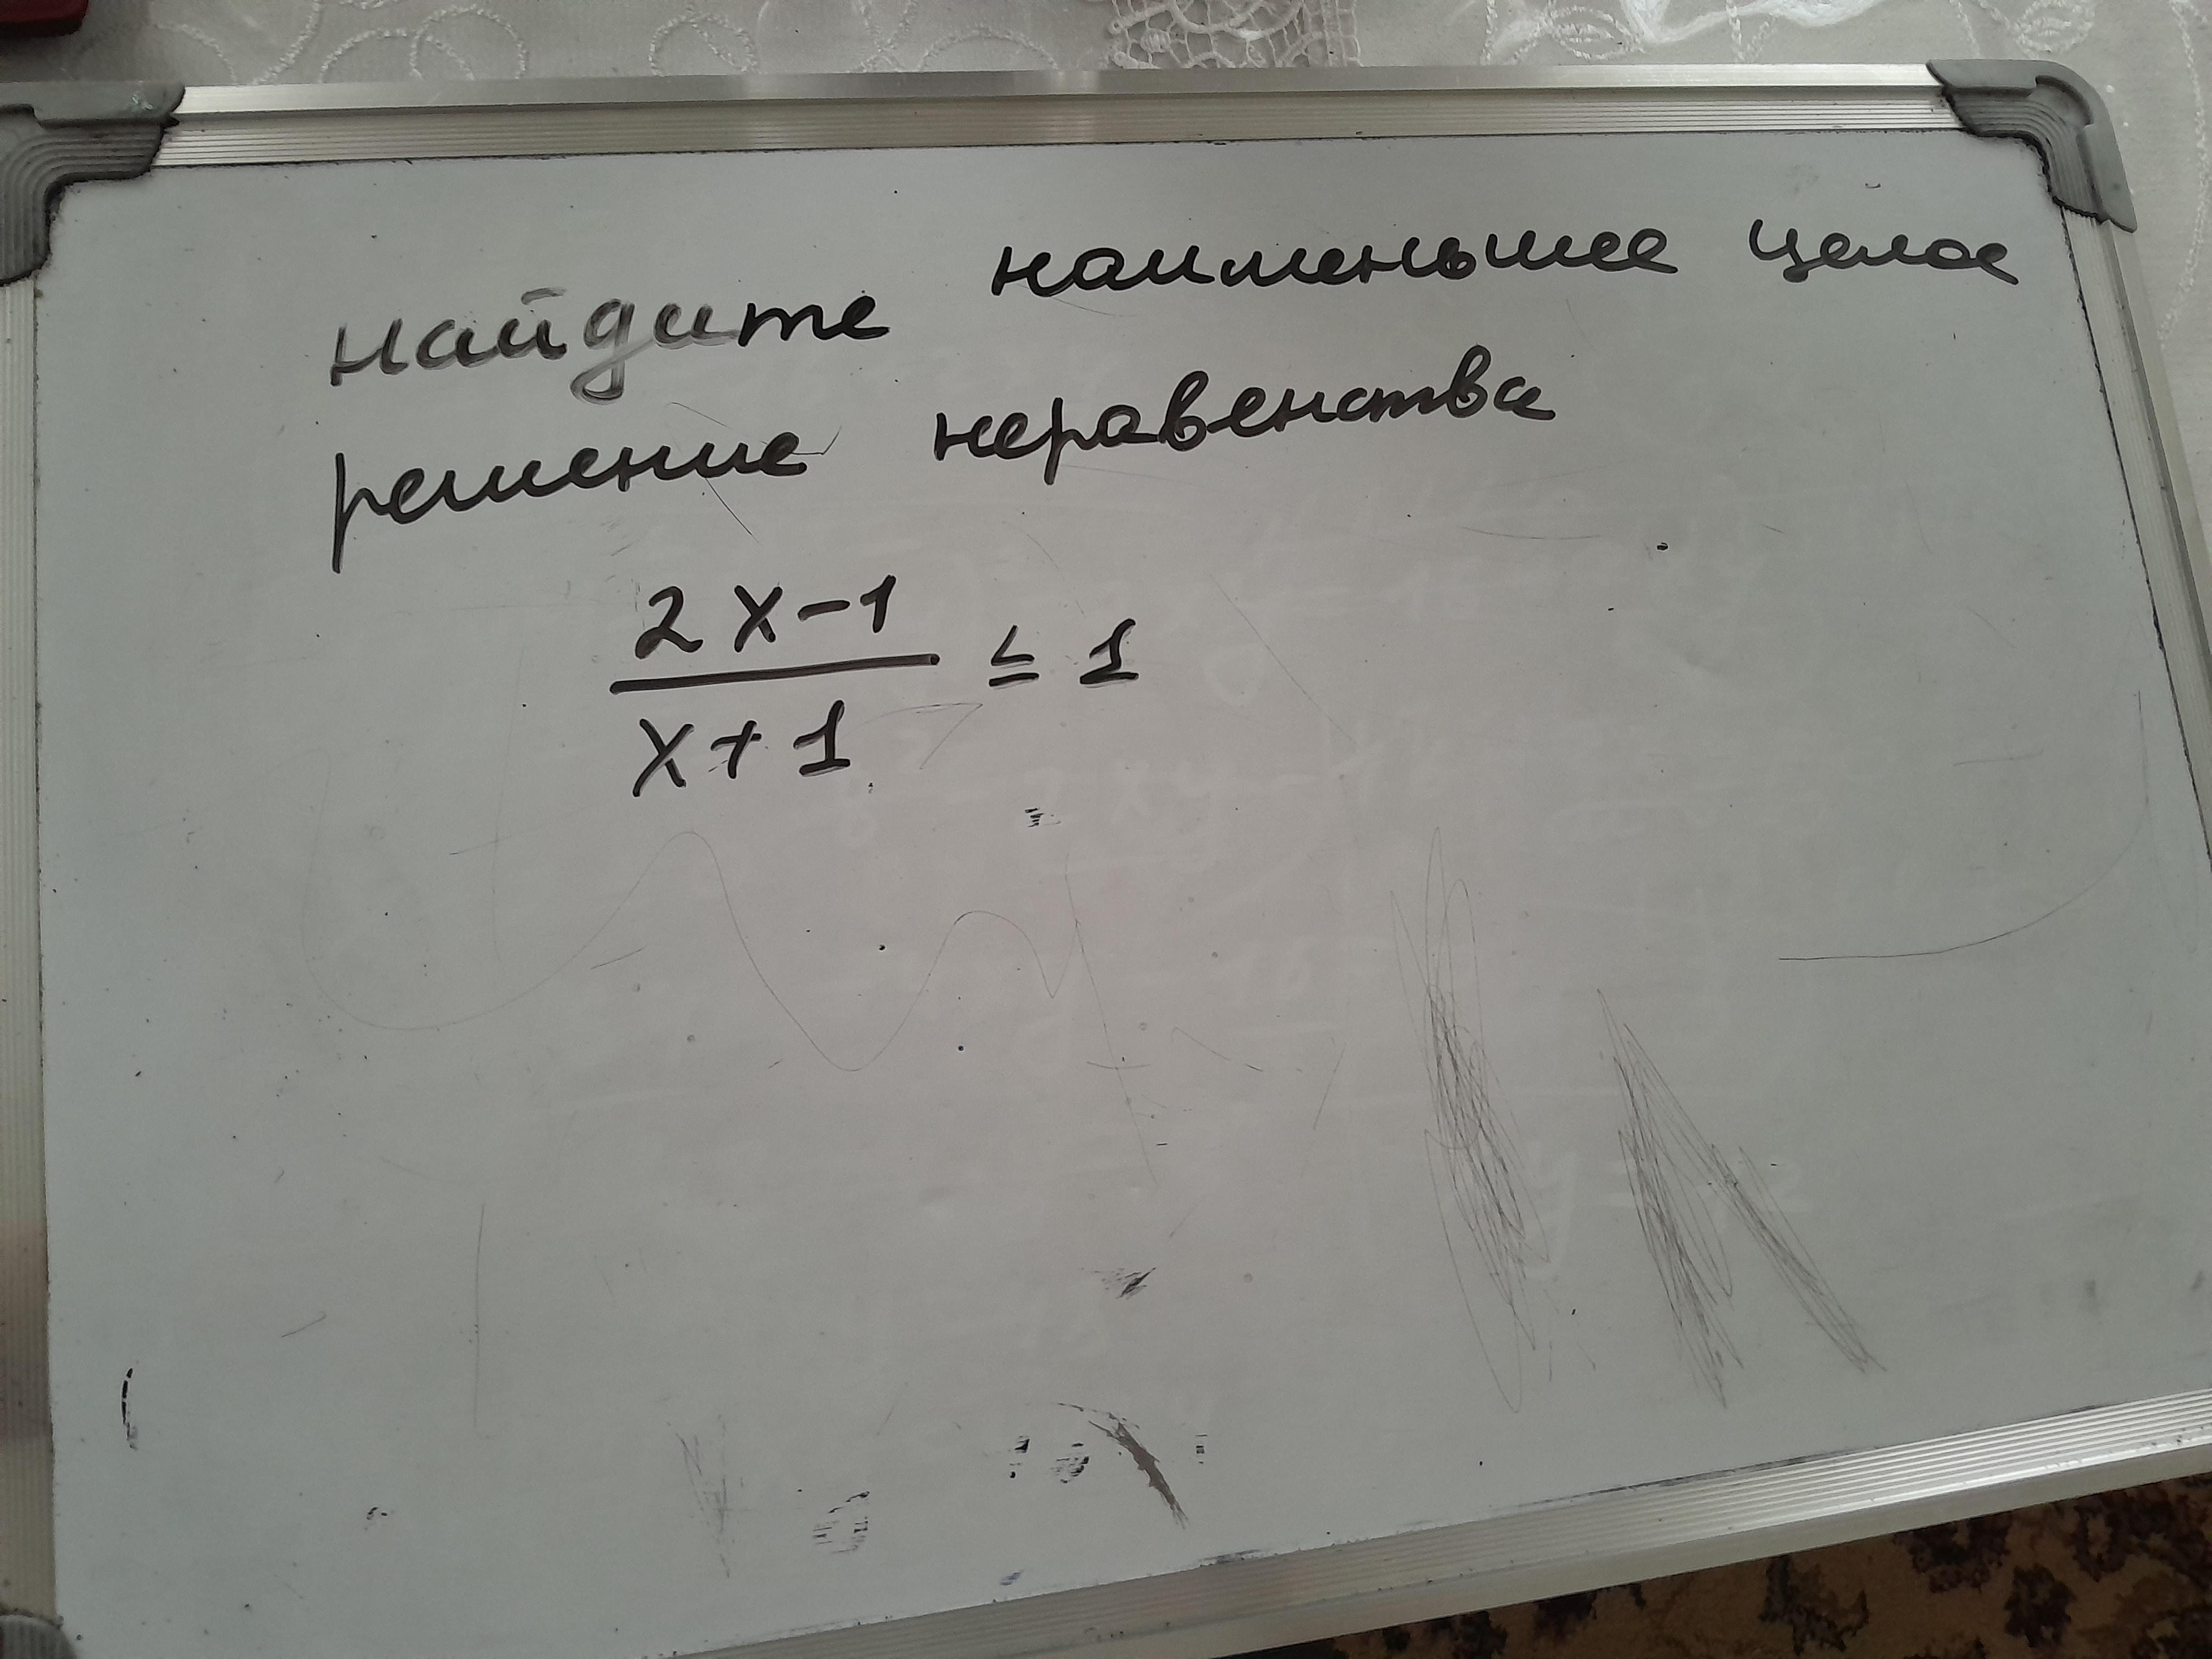 найдите наименьшее целое
решение неравенства
2x-1
/ x+1 ≤ 1